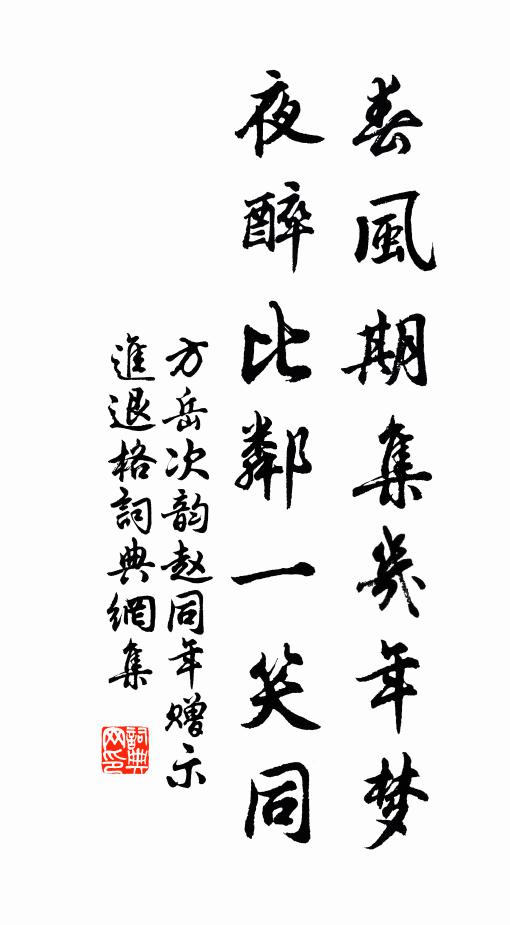 春風期集幾年梦
夜醉比鄰一笑同
方岳次韵赵同年赠示
進退格詞典網集
詞典网印